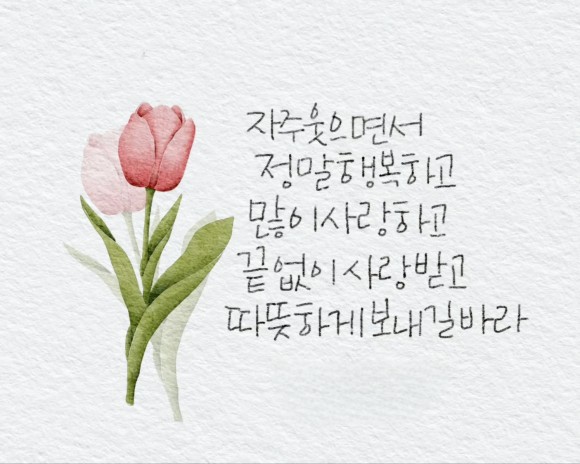 자주웃으면서
정말행복하고
많이사랑하고
끝없이사랑받고
따뜻하게보내길바라